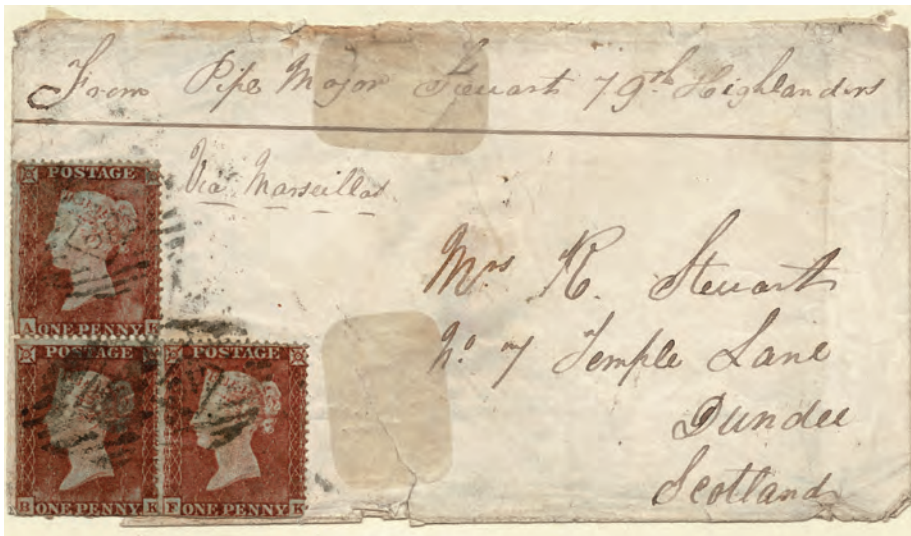 From Pipe Major Steuart 79th Highlanders
Via Marseilles
POSTAGE
A ONE PENNY K
POSTAGE
B ONE PENNY K
POSTAGE
F ONE PENNY K
Mrs R. Steuart
No 7 Temple Lane
Dundee
Scotland